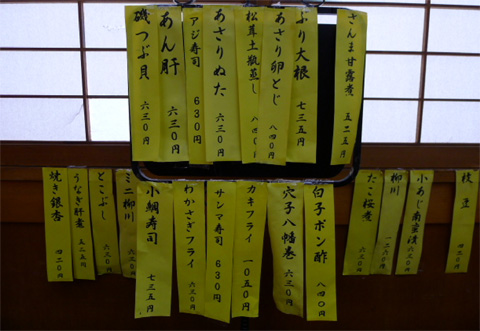 さんま甘露煮 五二五円
ぶり大根 七三五円
あさり卵とじ 八四〇円
松茸土瓶蒸し 八四〇円
あさりぬた 六三〇円
アジ寿司 630円
あん肝 六三〇円
磯つぶ貝 六三〇円
枝豆 四二〇円
小あじ南蛮漬 六三〇円
柳川 一二六〇円
たこ桜煮 六三〇円
白子ポン酢 八四〇円
穴子八幡巻 六三〇円
カキフライ 一〇五〇円
サンマ寿司 630円
わかさぎフライ 六三〇円
小鯛寿司 七三五円
ミニ柳川 六三〇円
とこぶし 六三〇円
うなぎ肝煮 五二五円
焼き銀杏 四二〇円